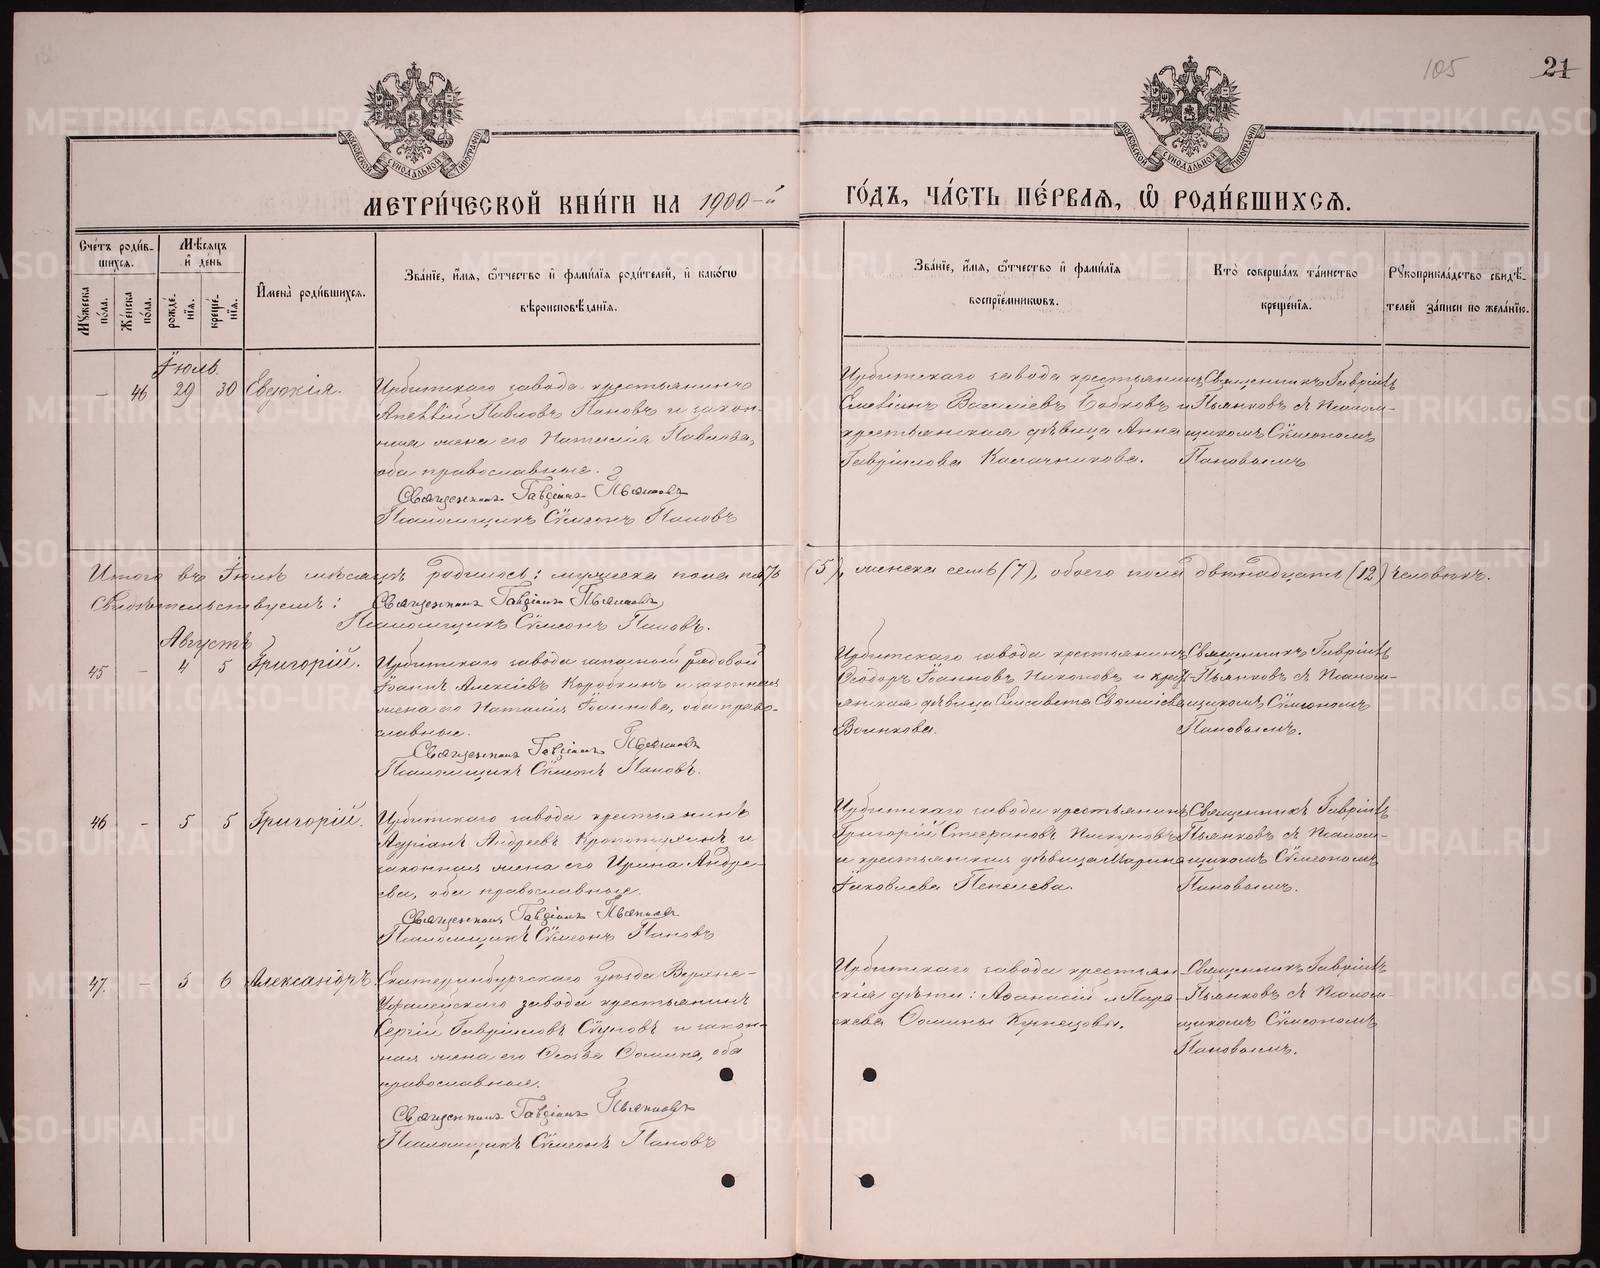 105 21
МЕТРИ́ЧЕСКОЙ КНИ́ГИ НА 1900-й ГО́ДЪ, ЧА́СТЬ ПЕ́РВАѦ, Ѽ РОДИ́ВШИХСѦ.
Счётъ роди́вшихсѧ.
Мꙋжеска по́ла.
Же́нска по́ла.
Мѣ́сѧцъ и҆ де́нь
рожде́нїѧ.
креще́нїѧ.
И҆мена̀ роди́вшихсѧ.
Зва́нїе, и҆́мѧ, ѻ҆́тчество и҆ фами́лїѧ роди́телей, и҆ како́гѡ
вѣроисповѣ́данїѧ.
Зва́нїе, и҆́мѧ, ѻ҆́тчество и҆ фами́лїѧ
воспрїе́мникѡвъ.
Кто̀ соверша́лъ та́инство
креще́нїѧ.
Рꙋкоприкла́дство свидѣ́-
телей за́писи по жела́нїю.
Іюль.
— 46 29 30 Евдокія.
Ирбитскаго завода крестьянинъ
Алексій Павловъ Пановъ и закон-
ная жена его Наталія Павлова,
оба православные.
Священникъ Гавріилъ Пьянковъ
Псаломщикъ Сѵмеонъ Пановъ
Ирбитскаго завода крестьянинъ
Емеліанъ Василіевъ Бобковъ и
крестьянская дѣвица Анна
Гавріилова Калачникова.
Священникъ Гавріилъ
Пьянковъ съ Псалом-
щикомъ Сѵмеономъ
Пановымъ
Итого въ Іюлѣ мѣсяцѣ родилось: мужеска пола пять (5), женска семь (7), обоего пола двѣнадцать (12) человѣкъ.
Свидѣтельствуемъ: Священникъ Гавріилъ Пьянковъ
Псаломщикъ Сѵмеонъ Пановъ.
Августъ
45 — 4 5 Григорій.
Ирбитскаго завода запасной рядовой
Іоаннъ Алексіевъ Коробкинъ и законная
жена его Наталія Іоаннова, оба право-
славные.
Священникъ Гавріилъ Пьянковъ
Псаломщикъ Сѵмеонъ Пановъ.
Ирбитскаго завода крестьянинъ
Ѳеодоръ Іоанновъ Никоновъ и крест-
янская дѣвица Елисавета
Воинкова.
Священникъ Гавріилъ
Пьянковъ съ Псалом-
щикомъ Сѵмеономъ
Пановымъ.
46 — 5 5 Григорій.
Ирбитскаго завода крестьянинъ
Адріанъ Андреевъ Кропотухинъ и
законная жена его Ирина Андре-
ева, оба православные.
Священникъ Гавріилъ Пьянковъ
Псаломщикъ Сѵмеонъ Пановъ
Ирбитскаго завода крестьянинъ
Григорій Стефановъ Пискуновъ
и крестьянская дѣвица Марина
Іаковлева Пепелева.
Священникъ Гавріилъ
Пьянковъ съ Псалом-
щикомъ Сѵмеономъ
Пановымъ.
47. — 5 6 Александръ.
Екатеринбургскаго уѣзда Верхне-
Уфалейскаго завода крестьянинъ
Сергій Гавріиловъ и закон-
ная жена его Ѳомина, оба
православные.
Священникъ Гавріилъ Пьянковъ
Псаломщикъ Сѵмеонъ Пановъ
Ирбитскаго завода крестьян-
скія дѣти: Аѳанасій и Пара-
скева Ѳомины Кузнецовы.
Священникъ Гавріилъ
Пьянковъ съ Псалом-
щикомъ Сѵмеономъ
Пановымъ.
METRIKI.GASO-URAL.RU